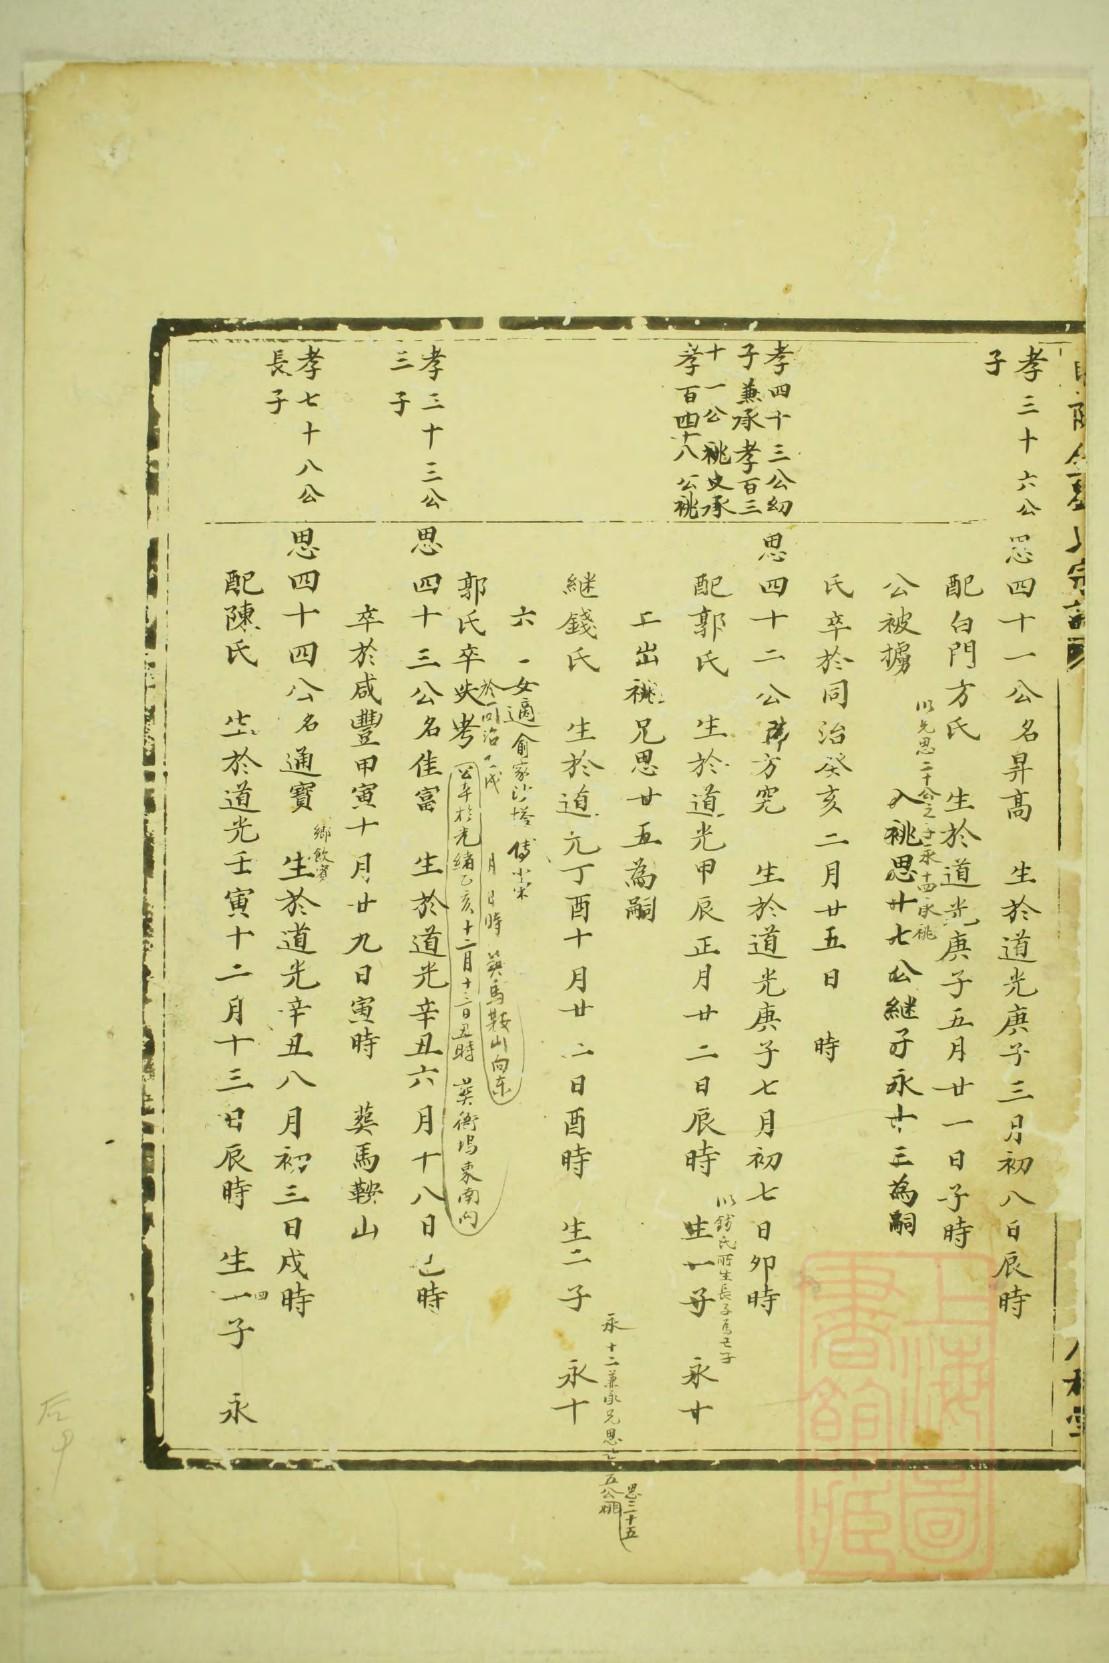 孝三十六公
子
思四十一公名昇高 生於道光庚子三月初八日辰時
配白門方氏 生於道光庚子五月廿一日子時
以兄思二十公之子永十四承祧
公被擄 入祧思廿七公繼子永廿三為嗣
氏卒於同治癸亥二月廿五日 時
孝四十三公幼
子兼承孝百三
十一公祧史承
孝百四十八公祧
思四十二公諱方完 生於道光庚子七月初七日卯時
以錢氏所生長子為亡子
配郭氏 生於道光甲辰正月廿二日辰時 生一子 永廿
五出祧兄思廿五為嗣
永十二兼承兄思廿五公祧
思三十五
繼錢氏 生於道光丁酉十月廿二日酉時 生二子 永十
六 一女適俞家沙塔傅小宋
於同治 年 月 日時 葬馬鞍山向东
郭氏卒失考
公卒於光緒乙亥十二月十二日丑時 葬衛場東南向
孝三十三公
三子
思四十三公名佳富 生於道光辛丑六月十八日巳時
卒於咸豐甲寅十月廿九日寅時 葬馬鞍山
孝七十八公
長子
思四十四公名通寶 生於道光辛丑八月初三日戌時
鄉飲賓
配陳氏 生於道光壬寅十二月十三日辰時 生一子 永
四
上海圖
書館藏